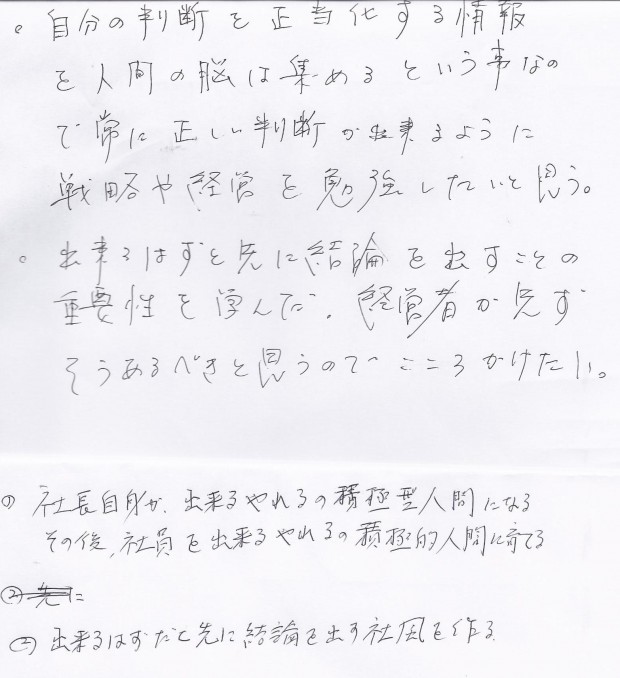 。自分の判断を正当化する情報
を人間の脳は集めるという事なの
で常に正しい判断が出来るように
戦略や経営を勉強したいと思う。
。出来るはずと先に結論を出すことの
重要性を学んだ。経営者が先ず
そうあるべきと思うのでこころがけたい。
① 社長自身が、出来るやれるの積極型人間になる
その後、社員を出来るやれるの積極的人間に育てる
② 先に
② 出来るはずだと先に結論を出す社風を作る